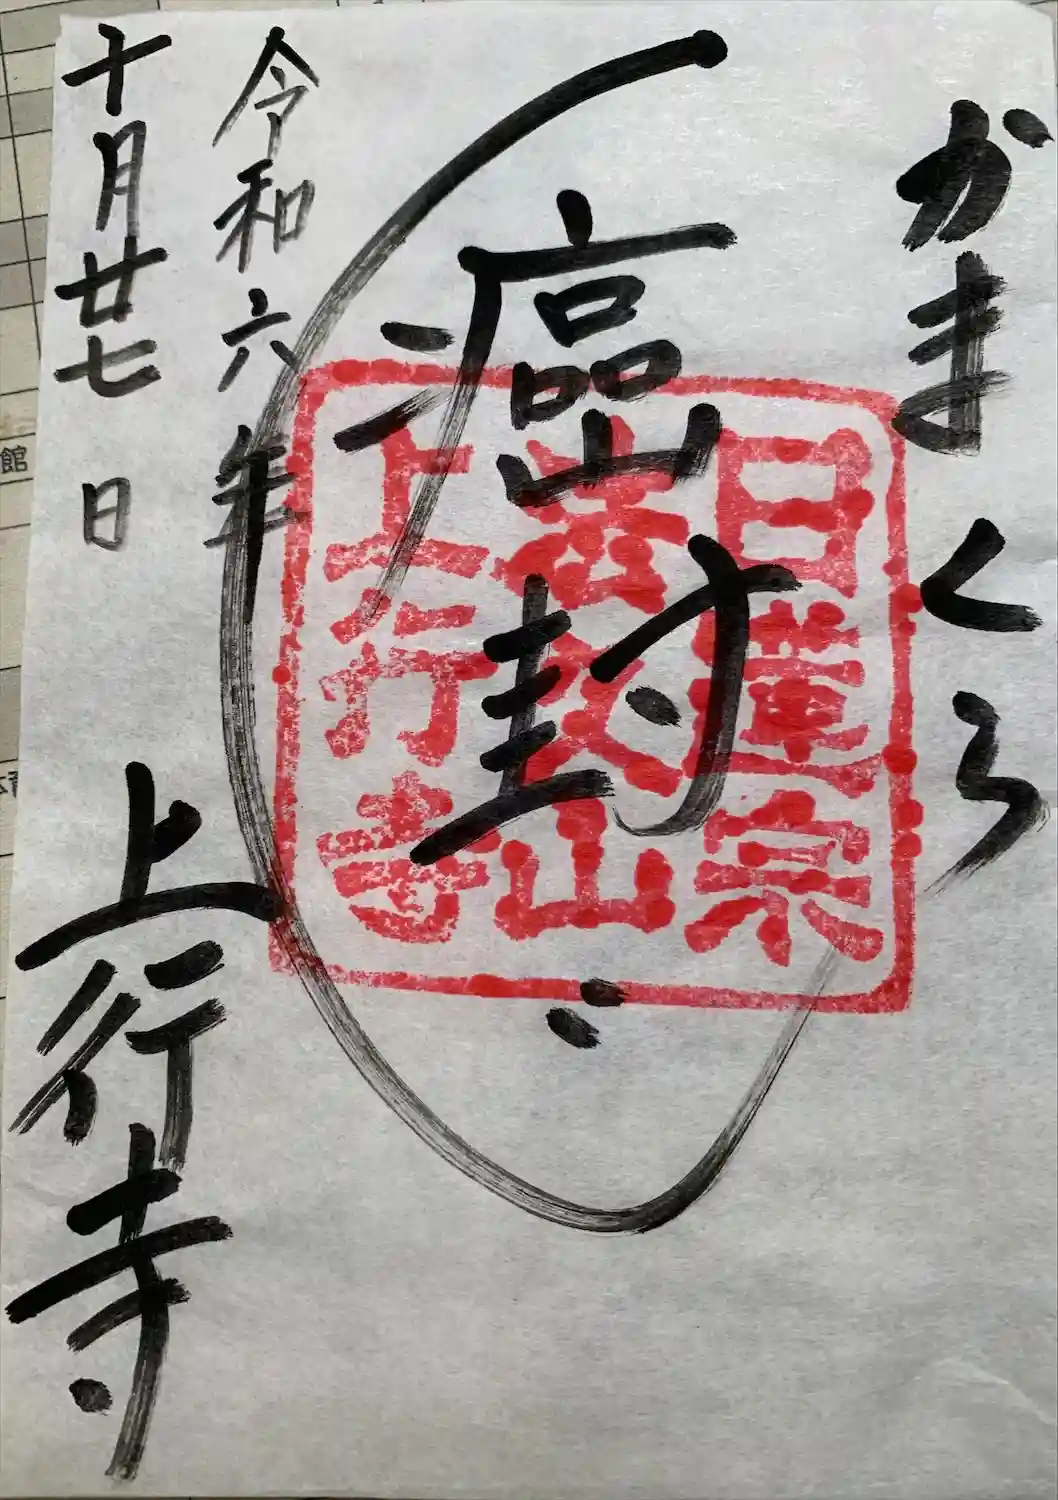 かまくら
癌封じ
日蓮宗
法久山
上行寺
令和六年
十月廿七日
上行寺
館